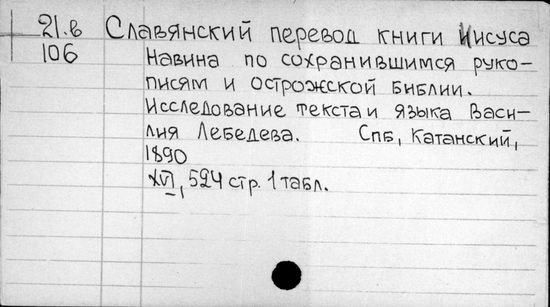 21.в Славянский перевод книги Иисуса
106 Навина по сохранившимся руко-
писям и острожской библии.
Исследование текста и языка Васи-
лия Лебедева. Спб, Катанский,
1890
XVI, 524 стр. 1 табл.